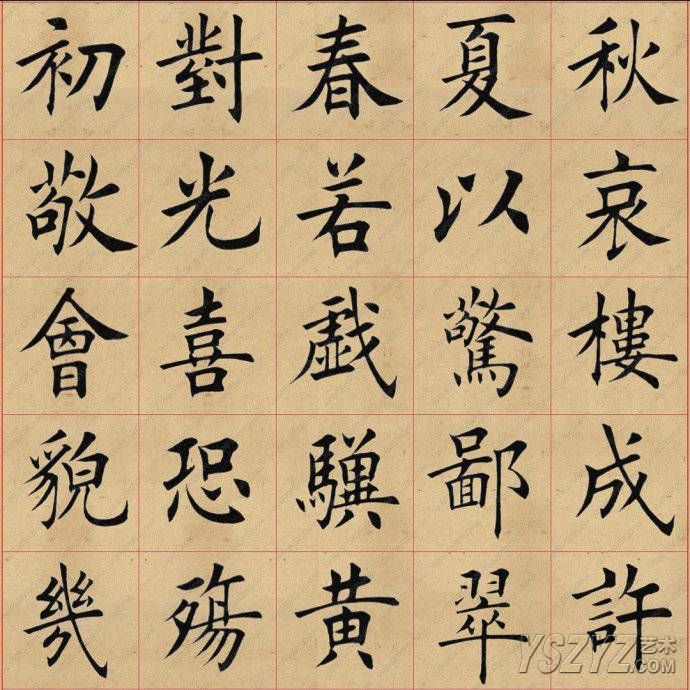 初對春夏秋
敬光若以哀
會喜戲驚樓
貌恐驥鄙成
幾殤黄翠許
YSZYZ艺术